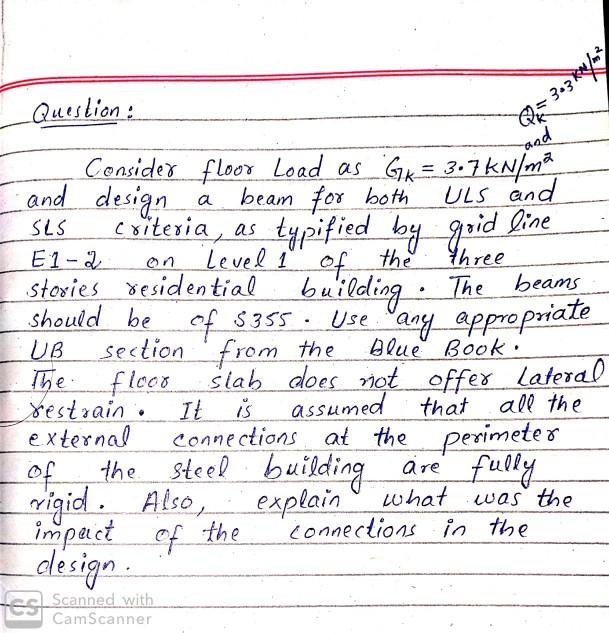 Question :
Qk = 3.3 KN/m²
and
Consider floor Load as Gk = 3.7 KN/m²
and design a beam for both ULS and
SLS criteria, as typified by grid line
E1-2 on Level 1 of the three
stories residential building. The beams
should be of S355. Use any appropriate
UB section from the Blue Book.
The floor slab does not offer Lateral
restrain. It is assumed that all the
external connections at the perimeter
of the steel building are fully
rigid. Also, explain what was the
impact of the connections in the
design.
CS Scanned with
CamScanner